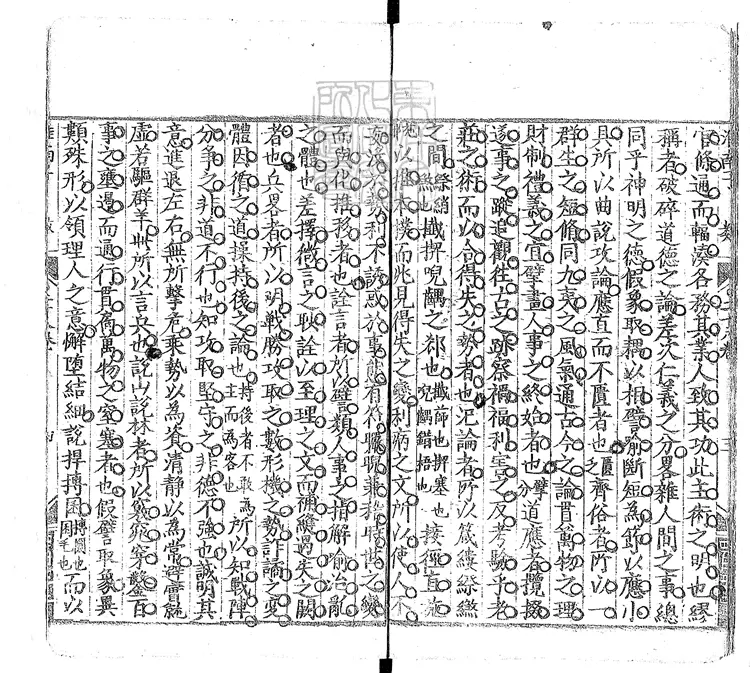 官條通而輻湊各務其業人致其功此主術之明也繆
稱者破碎道德之論差次仁義之分畧雜人間之事總
同乎神明之德假象取耦以相譬喻斷短為節以應小
具所以曲說攻論應直而不匱者也匱乏齊俗者所以一
群生之短脩同九夷之風氣通古今之論貫萬物之理
財制禮義之宜擘畫人事之終始者也擘分道應者攬掇
遂事之蹤追觀往古之跡察禍福利害之反考驗乎老
莊之術而以合得失之勢者也氾論者所以箴縷縩繺
之間縩綃煞也攕揳唲齵之郄也攕篩也揳塞也唲齵錯梧也接徑直施
以推本樸而兆見得失之變利病之文所以使人不
妄沒於勢利不誘惑於事態有符曮晲兼稽時勢之變
而與化推移者也詮言者所以譬類人事之指解喻治亂
之體也差擇微言之眇詮以至理之文而補縫過失之闕
者也兵畧者所以明戰勝攻取之數形機之勢詐譎之變
體因循之道操持後之論也持後者不敢為主而為客也所以知戰陣
分爭之非道不行也知攻取堅守之非德不強也誠明其
意進退左右無所擊危乘勢以為資清靜以為常避實就
虛若驅群羊此所以言兵也說山說林者所以竅窕穿鑿百
事之壅遏而通行貫扃萬物之窒塞者也假譬取象異
類殊形以領理人之意懈墮結細說捍摶囷摶圜也囷芚也而以